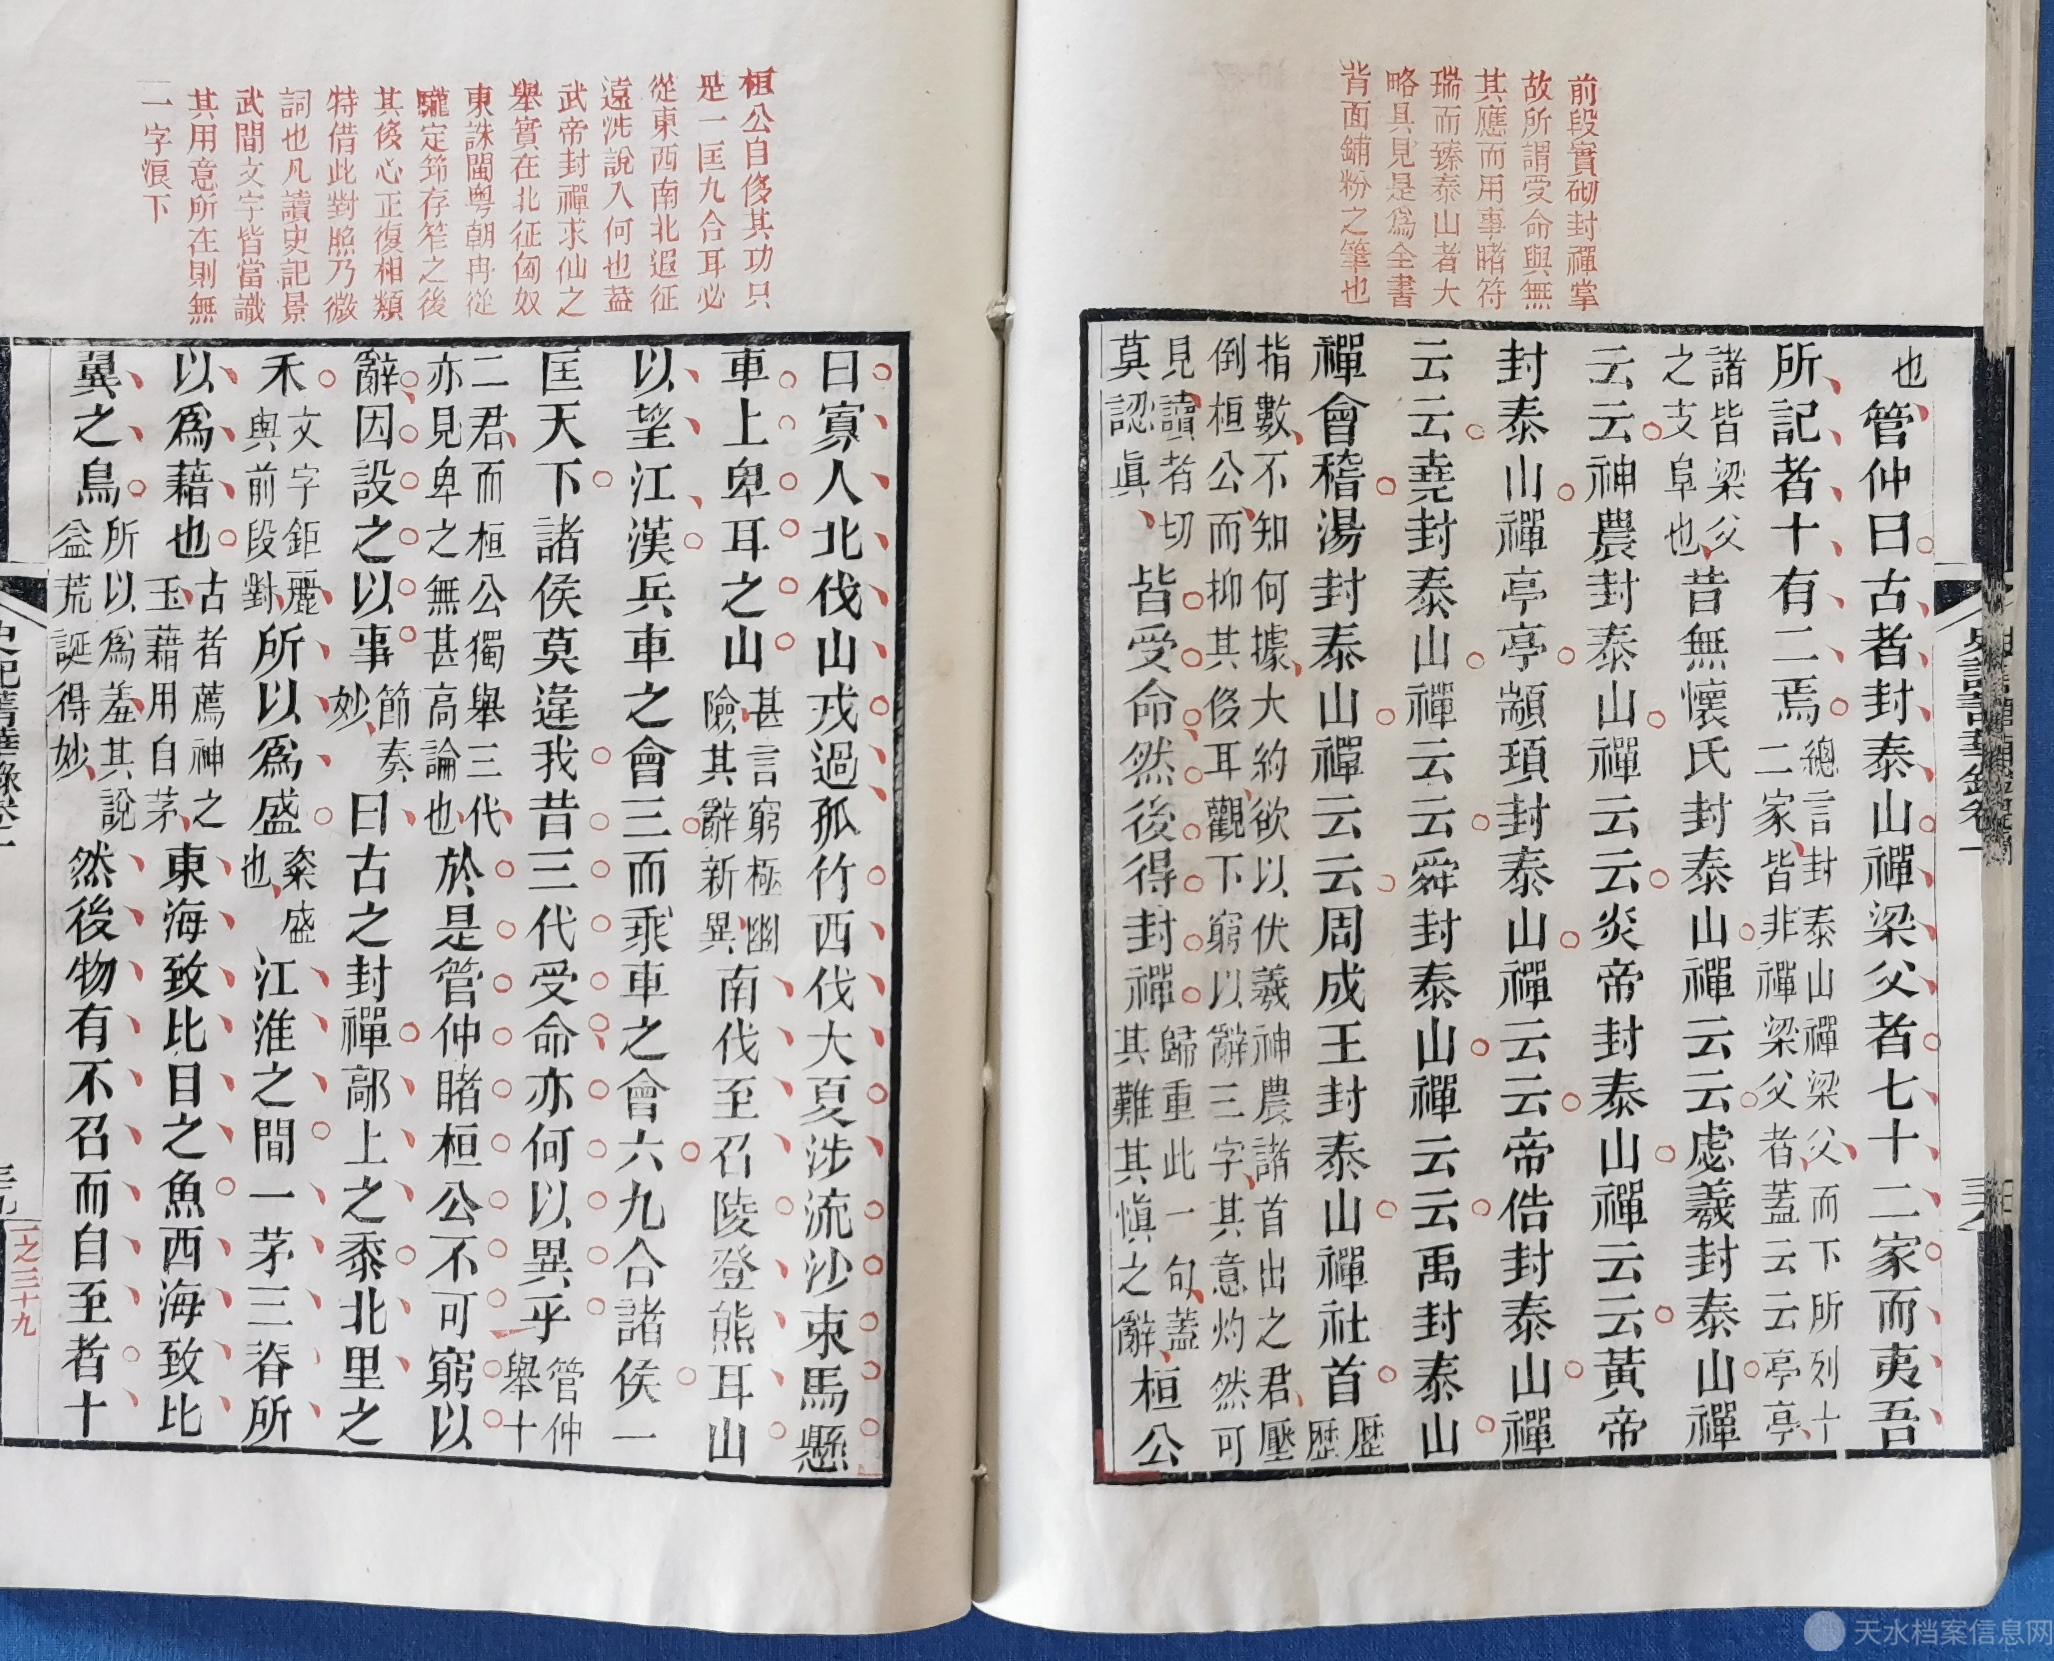 前段實砌封禪掌
故所謂受命與無
其應而用事睹符
瑞而臻泰山者大
略具見是爲全書
背面鋪粉之筆也
也
管仲曰古者封泰山禪梁父者七十二家而夷吾
所記者十有二焉
總言封泰山禪梁父而下所列十
二家皆非禪梁父者蓋云云亭亭
諸皆梁父
之支阜也
昔無懷氏封泰山禪云云虙羲封泰山禪
云云神農封泰山禪云云炎帝封泰山禪云云黃帝
封泰山禪亭亭顓頊封泰山禪云云帝俈封泰山禪
云云堯封泰山禪云云舜封泰山禪云云禹封泰山
禪會稽湯封泰山禪云云周成王封泰山禪社首
歷
歷
指數不知何據大約欲以伏羲神農諸首出之君壓
倒桓公而抑其侈耳觀下窮以辭三字其意灼然可
見讀者切
莫認眞
皆受命然後得封禪
歸重此一句蓋
其難其愼之辭
桓公
史記菁華錄卷一
桓公自侈其功只
是一匡九合耳必
從東西南北遐征
遠涉說入何也葢
武帝封禪求仙之
舉實在北征匈奴
東誅閩粵朝冉從
駹定筰存筰之後
其侈心正復相類
特借此對照乃微
詞也凡讀史記景
武間文字皆當識
其用意所在則無
一字浪下
曰寡人北伐山戎過孤竹西伐大夏涉流沙束馬懸
車上卑耳之山
甚言窮極幽
險其辭新異
南伐至召陵登熊耳山
以望江漢兵車之會三而乘車之會六九合諸侯一
匡天下諸侯莫違我昔三代受命亦何以異乎
管仲
舉十
二君而桓公獨舉三代
亦見卑之無甚高論也
於是管仲睹桓公不可窮以
辭因設之以事
節奏
妙
曰古之封禪鄗上之黍北里之
禾
文字鉅麗
與前段對
所以爲盛
粢盛
也
江淮之間一茅三脊所
以爲藉也
古者薦神之
玉藉用自茅
東海致比目之魚西海致比
翼之鳥
所以爲羞其說
益荒誕得妙
然後物有不召而自至者十
史記菁華錄卷一
三九
一之三十九
天水档案信息网